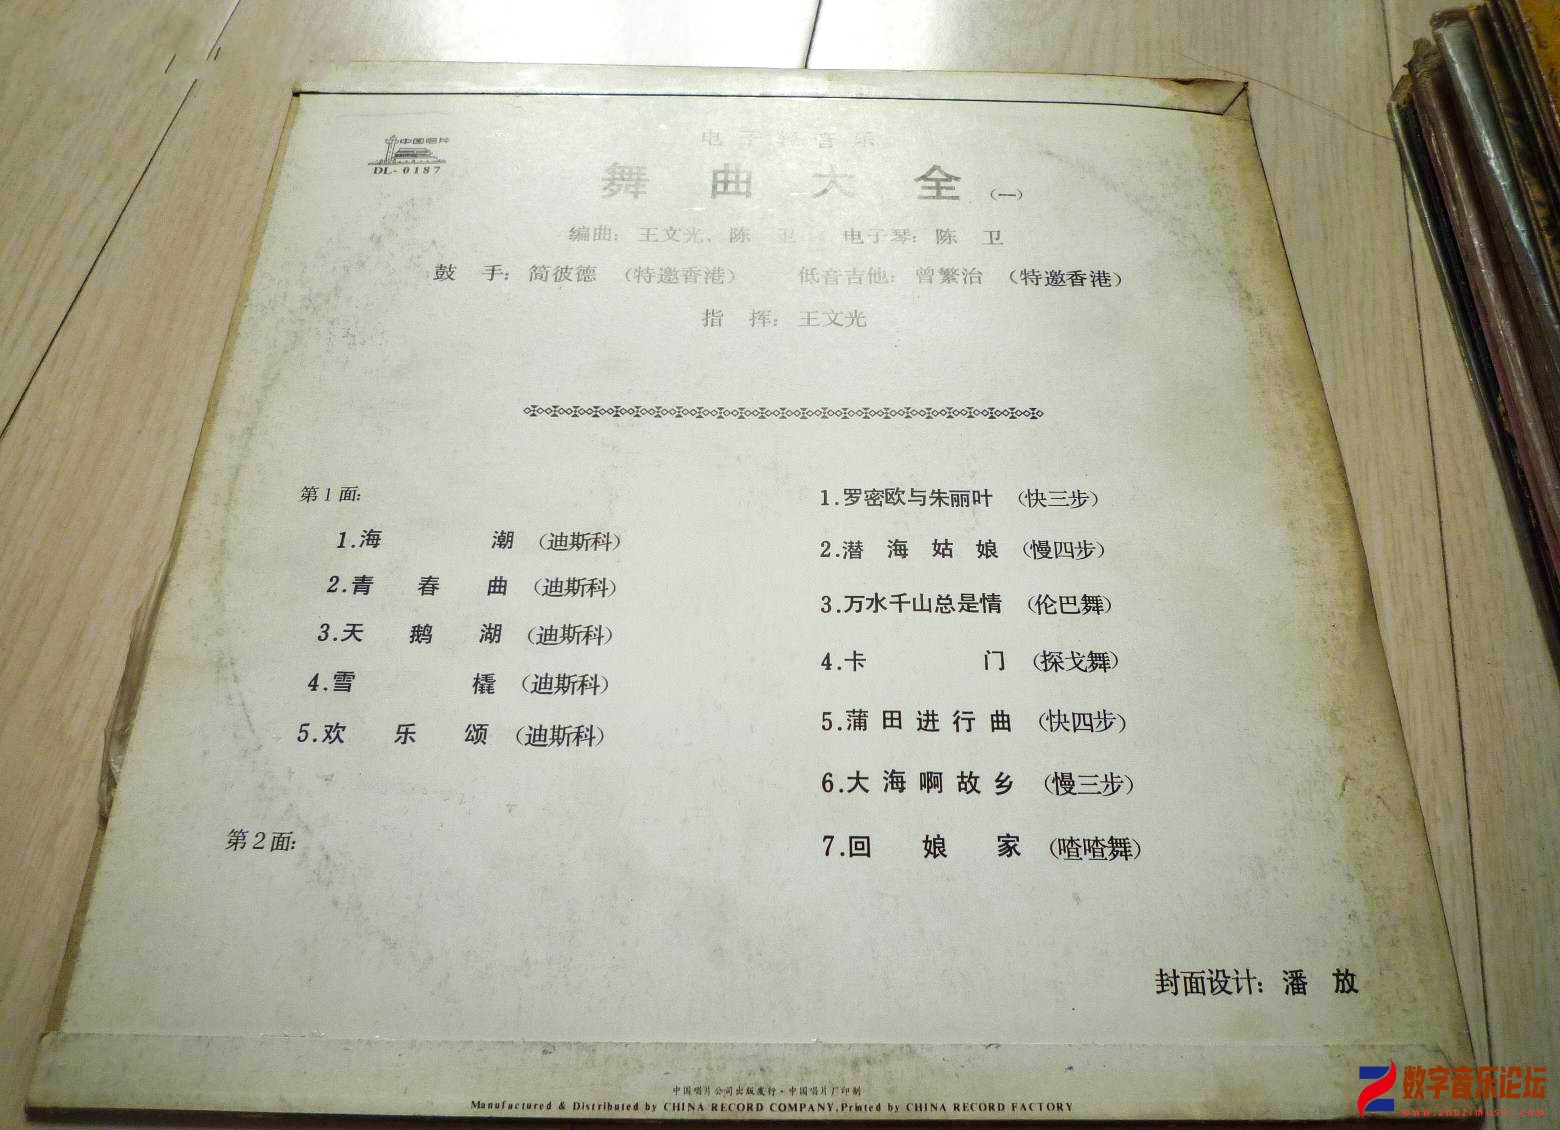 中国唱片
DL-0187
电子轻音乐
舞曲大全(一)
编曲：王文光、陈 卫 电子琴：陈 卫
鼓 手：简彼德（特邀香港） 低音吉他：曾繁治（特邀香港）
指 挥：王文光
第1面：
1.海 潮（迪斯科）
2.青 春 曲（迪斯科）
3.天 鹅 湖（迪斯科）
4.雪 橇（迪斯科）
5.欢 乐 颂（迪斯科）
第2面：
1.罗密欧与朱丽叶（快三步）
2.潜海姑娘（慢四步）
3.万水千山总是情（伦巴舞）
4.卡 门（探戈舞）
5.蒲田进行曲（快四步）
6.大海啊故乡（慢三步）
7.回 娘 家（喳喳舞）
封面设计：潘 放
中国唱片公司出版发行·中国唱片厂印制
Manufactured & Distributed by CHINA RECORD COMPANY, Printed by CHINA RECORD FACTORY
数字音乐论坛
www.shuzimusic.com